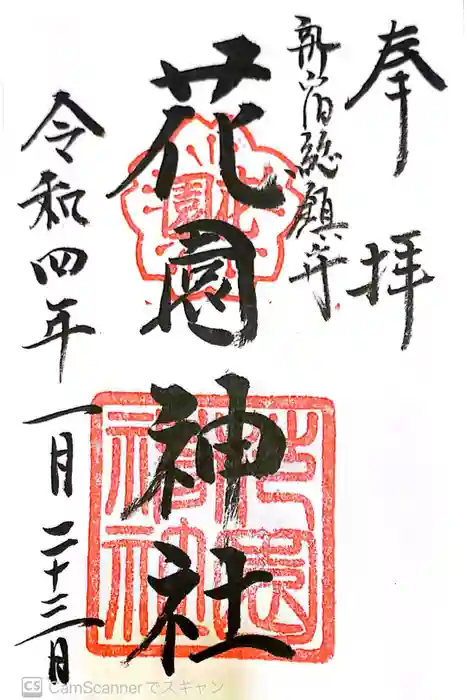 奉拝
新宿総鎮守
花園神社
令和四年一月二十三日
花園
花園神社
CamScannerでスキャン